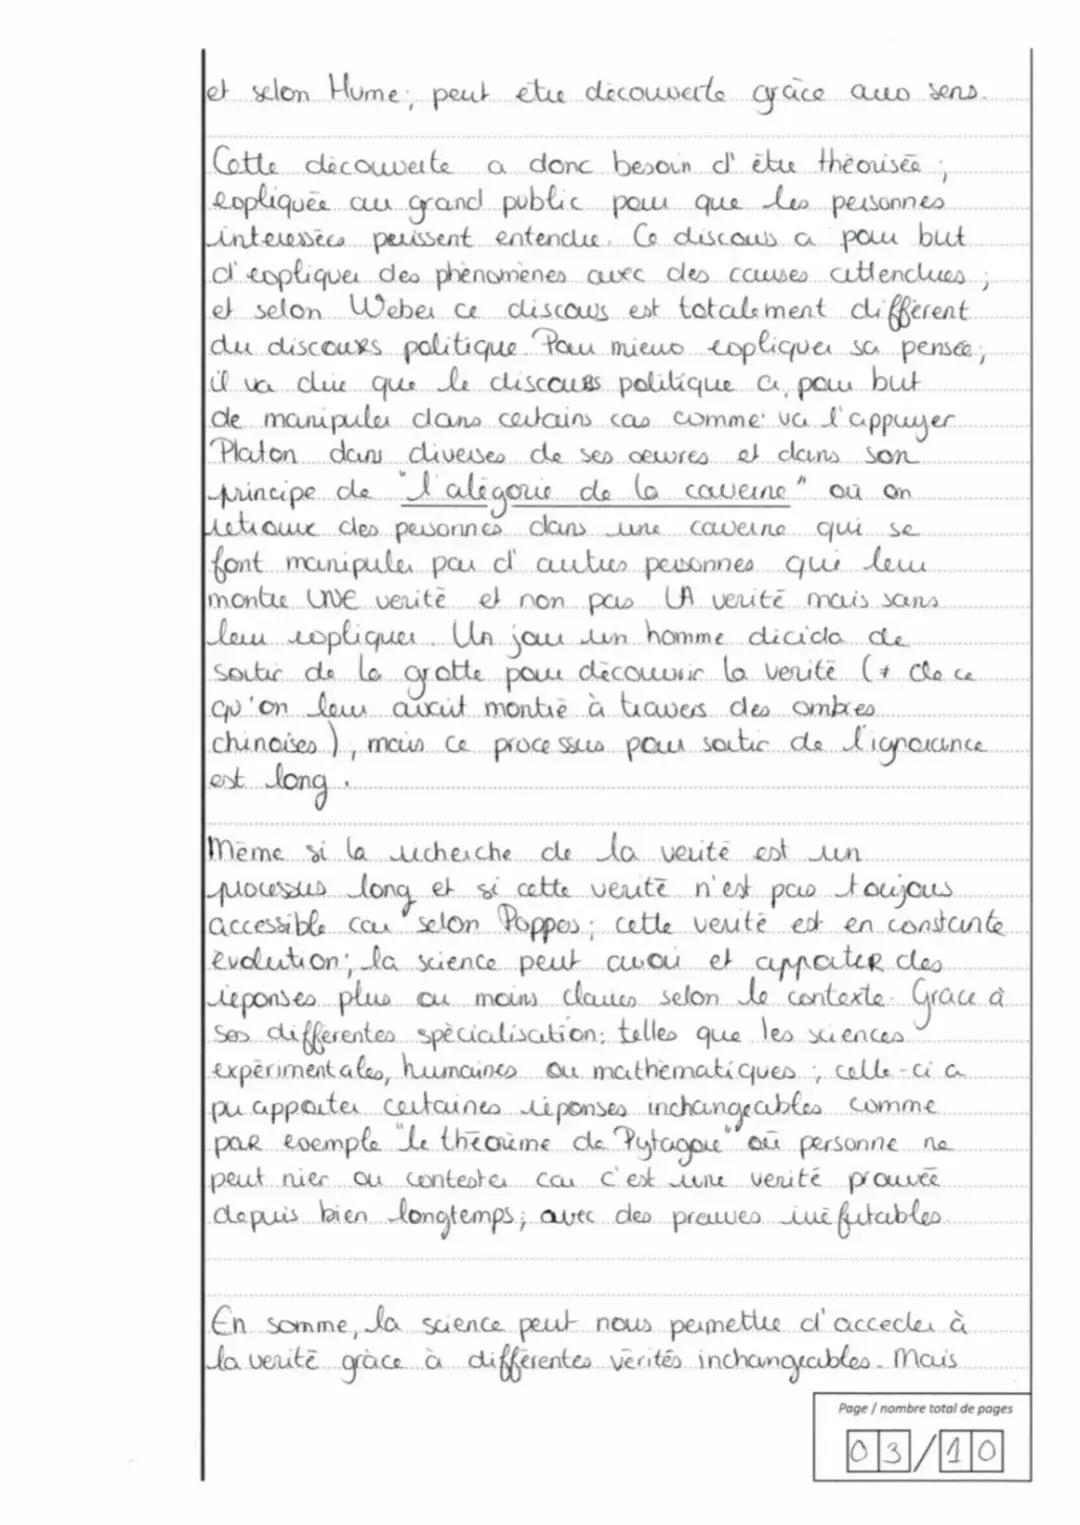 et selon Hume; peut être découverte grâce aux sens.
Cette découverte a donc besoin d'être théorisée;
expliquée au grand public pour que les personnes
interessées puissent entendre. Ce discours a pour but
d'expliquer des phénomènes avec des causes attendues;
et selon Weber ce discours est totalement différent
du discours politique. Pour mieux expliquer sa pensée;
il va dire que le discours politique a pour but
de manipuler dans certains cas comme va l'appuyer
Platon dans diverses de ses oeuvres et dans son
principe de "l'alégorie de la caverne" où on
retrouve des personnes dans une caverne qui se
font manipuler par d'autres personnes qui leur
montre UNE verité et non pas LA verité mais sans
leur expliquer. Un jour un homme dicida de
sortir de la grotte pour découvrir la verité (≠ de ce
qu'on leur avait montré à travers des ombres
chinoises), mais ce processus pour sortir de l'ignorance
est long.
Même si la recherche de la verité est un
processus long et si cette verité n'est pas toujours
accessible car selon Poppos; cette verité est en constante
évolution; la science peut avoir et apporter des
réponses plus ou moins claires selon le contexte. Grace à
ses différentes spécialisation; telles que les sciences
expérimentales, humaines ou mathématiques; celle-ci a
pu apporter certaines réponses inchangeables comme
par exemple "le théorème de Pytagore" où personne ne
peut nier ou contester car c'est une verité prouvée
depuis bien longtemps; avec des preuves inéfutables.
En somme, la science peut nous permettre d'acceder à
la verité grâce à différentes vérités inchangeables. Mais
Page / nombre total de pages
03/10